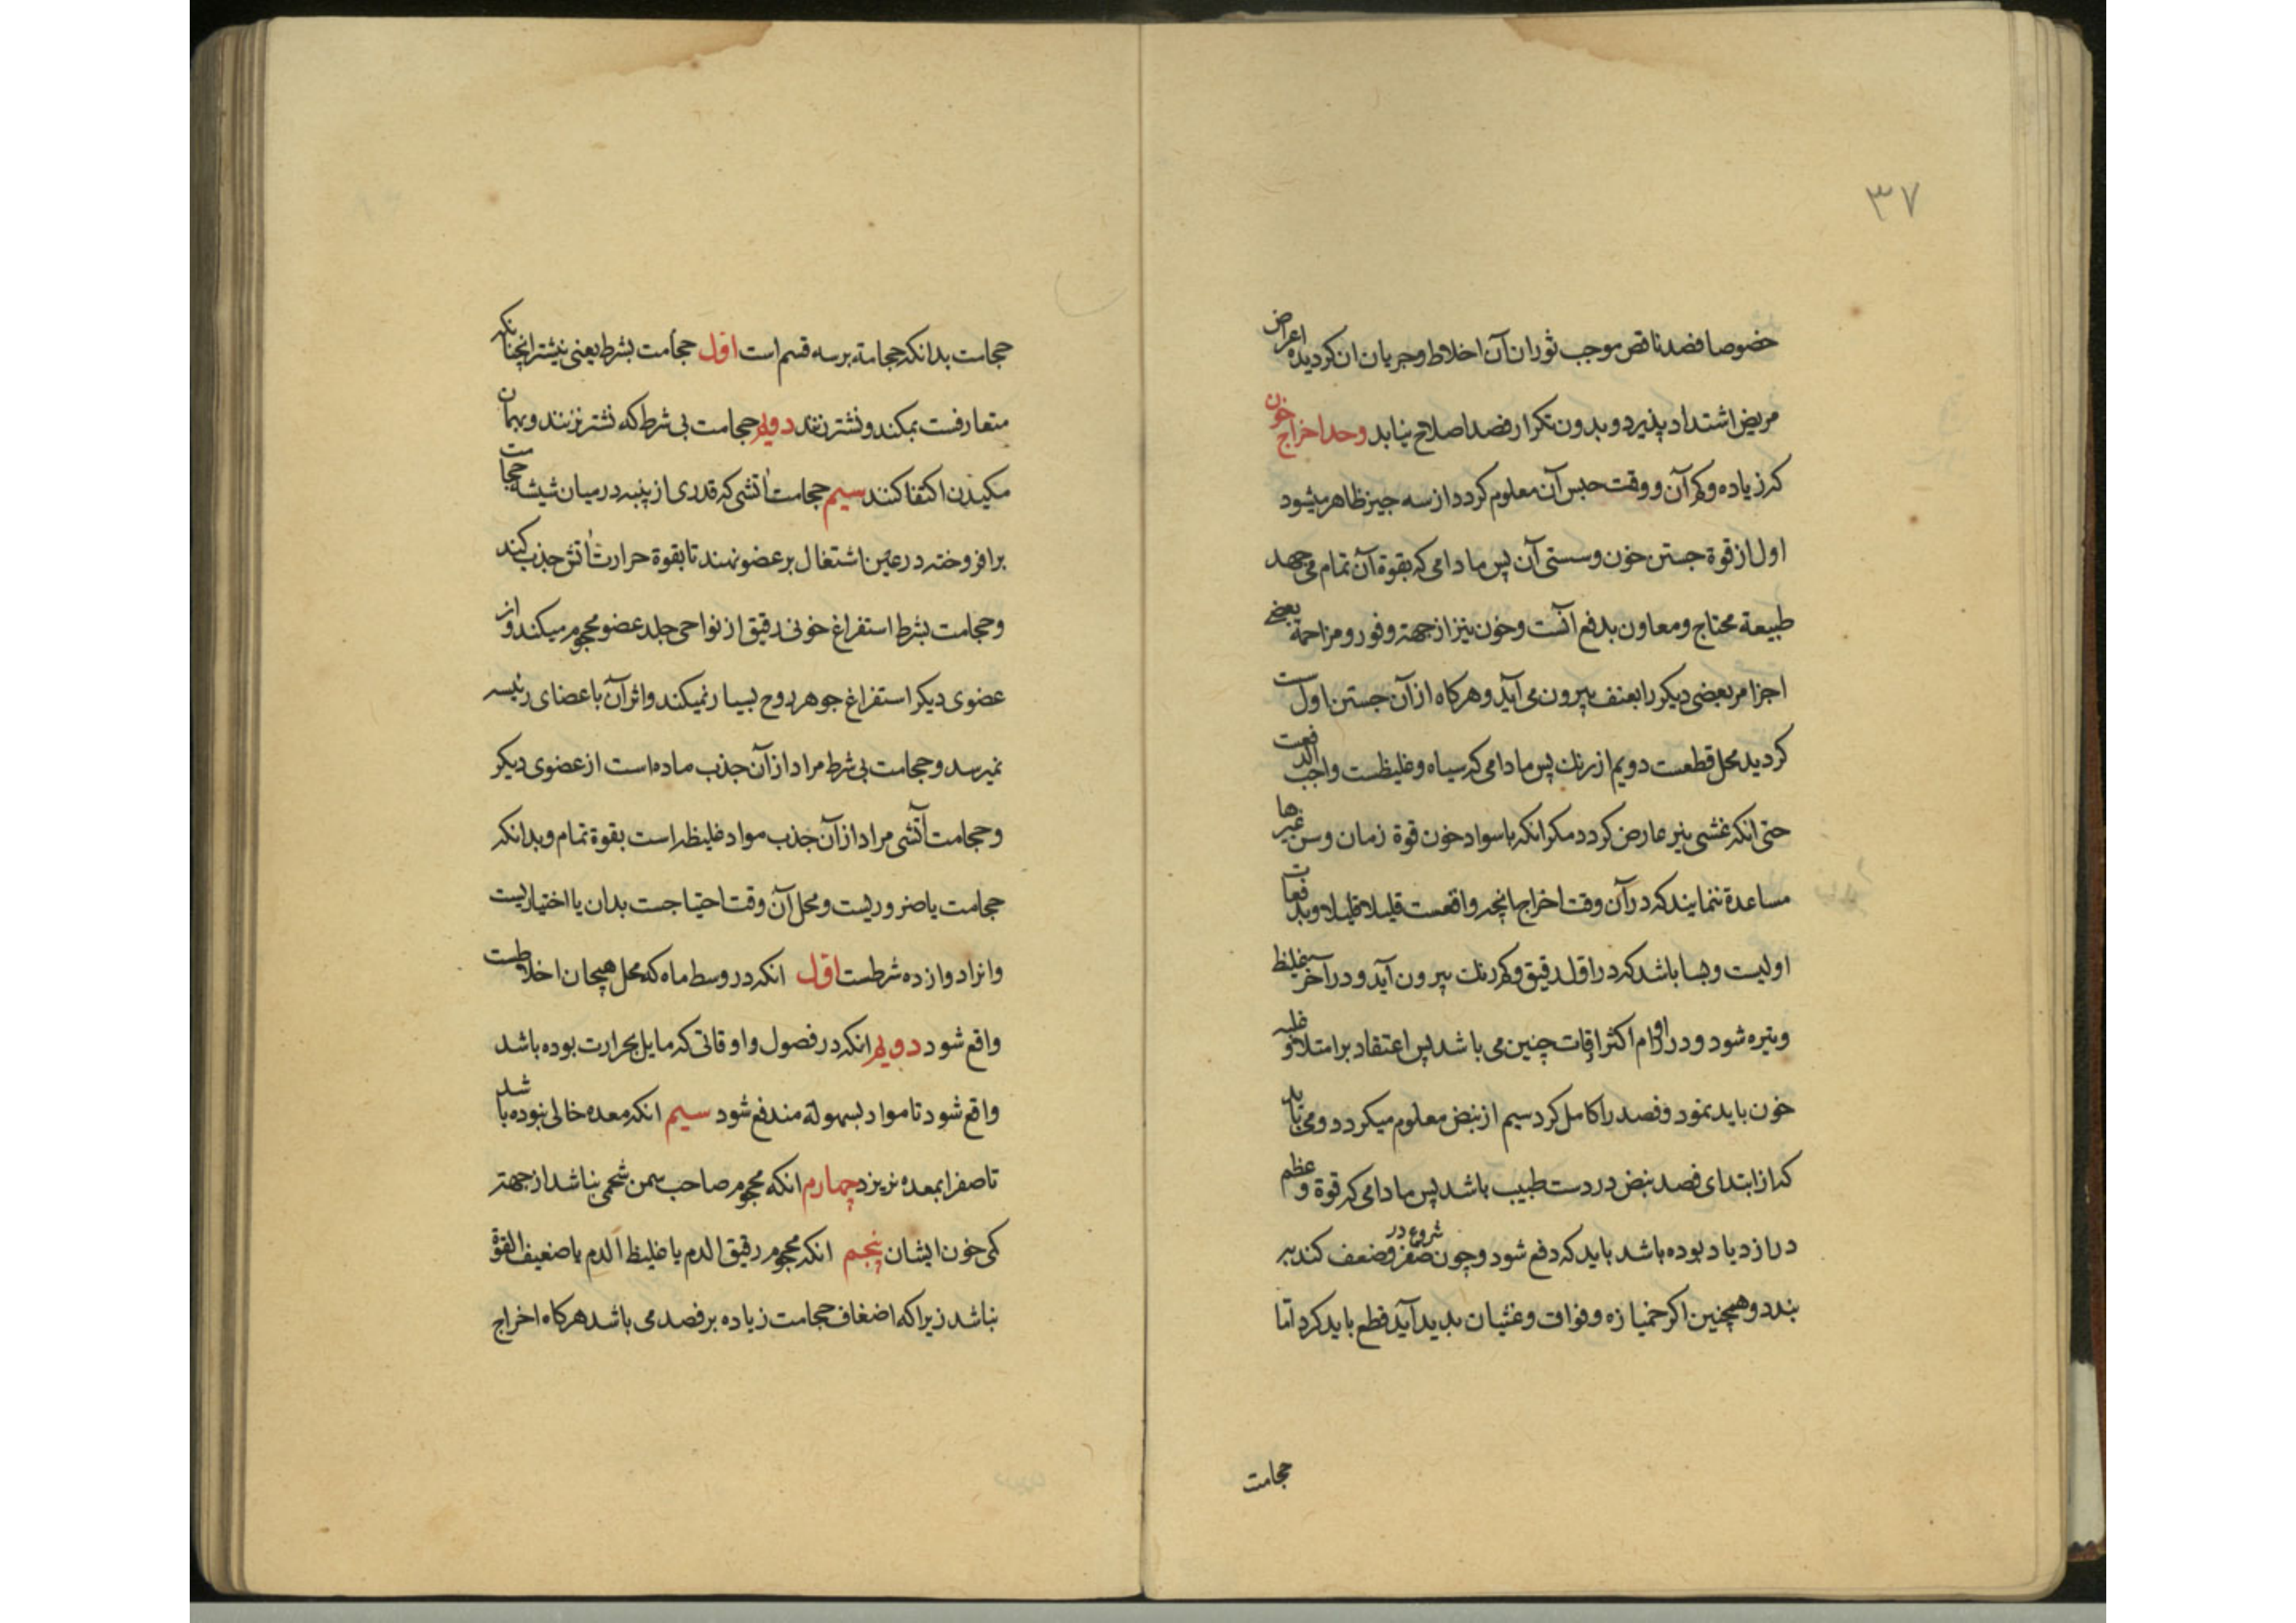 ۳۷
خصوصا فصد ناقص موجب ثوران آن اخلاط و جریان ان کردیده اعراض
مریض اشتداد پذیرد و بدون تکرار فصد اصلاح نیابد و حد اخراج خون
که زیاده و کم آن و وقت حبس آن معلوم کردد از سه چیز ظاهر میشود
اول از قوة جستن خون و سستی آن پس مادامی که بقوة آن تمام می جهد
طبیعة محتاج و معاون بدفع آنست و خون نیز از جهة وفور و مزاحمة بعضی
اجزا مر بعضی دیکر را بعنف بیرون می آید و هرکاه از آن جستن اول سست
کردید محل قطعست دویم از رنك پس مادامی که سیاه و غلیظست واجب الدفعست
حتی انکه غشی نیز عارض کردد مکر انکه با سواد خون قوة زمان و سن و غیرها
مساعدة ننمایند که در آن وقت اخراج انچه واقعست قلیلا قلیلا و بدفعات
اولیست و بسا باشد که در اول رقیق و کم رنك بیرون آید و در آخر غلیظ
و تیره شود و در اورام اکثر اوقات چنین می باشد پس اعتقاد بر امتلا و غلبه
خون باید نمود و فصد را کامل کرد سیم از نبض معلوم میکردد و می باید
که از ابتدای فصد نبض در دست طبیب باشد پس مادامی که قوة و عظم
در ازدیاد بوده باشد باید که دفع شود و چون شروع در صغر و ضعف کند به
بندد و همچنین اکر خمیازه و فواق و غثیان بدید آید قطع باید کرد اما
حجامت
حجامت بدانکه حجامة بر سه قسم است اول حجامت بشرط یعنی نیشتر انچنانکه
متعارفست بمکند و نشتر زنند دویم حجامت بی شرط که نشتر نزنند و بهمان
مکیدن اکتفا کنند سیم حجامت آتشی که قدری از پنبه در میان شیشه حجامت
برافروخته در عین اشتغال بر عضو نهند تا بقوة حرارت آتش جذب کند
و حجامت بشرط استفراغ خونی رقیق از نواحی جلد عضو محجوم میکند و از
عضوی دیکر استفراغ جوهر روح بسیار نمیکند و اثر آن باعضای رئیسه
نمیرسد و حجامت بی شرط مراد از آن جذب ماده است از عضوی دیکر
و حجامت آتشی مراد از آن جذب مواد غلیظه است بقوة تمام و بدانکه
حجامت یا ضروریست و محل آن وقت احتیاجست بدان یا اختیاریست
و انرا دوازده شرطست اول انکه در وسط ماه که محل هیجان اخلاطست
واقع شود دویم انکه در فصول و اوقاتی که مایل بحرارت بوده باشد
واقع شود تا مواد بسهولة مندفع شود سیم انکه معده خالی نبوده باشد
تا صفرا بمعده نریزد چهارم انکه محجوم صاحب سمن شحمی نباشد از جهة
کمی خون ایشان پنجم انکه محجوم رقیق الدم یا غلیظ الدم یا ضعیف القوة
نباشد زیرا که اضعاف حجامت زیاده بر فصد می باشد هرکاه اخراج